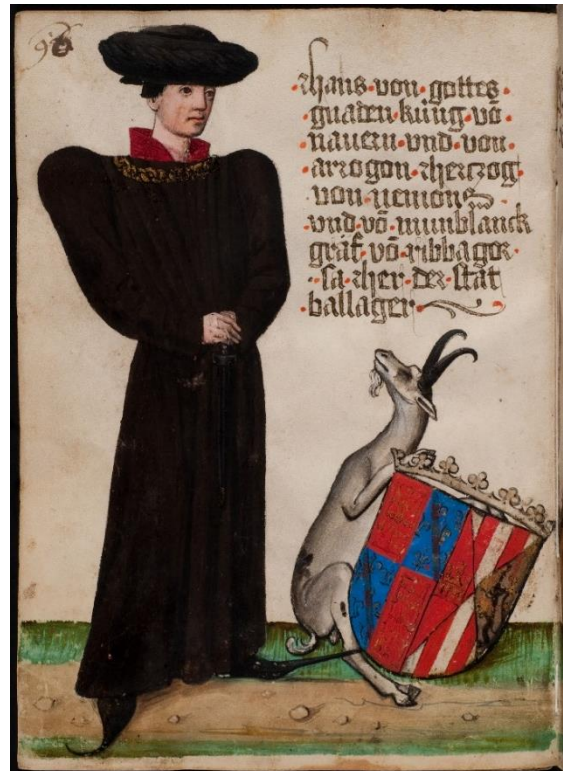 Jhans · von · gottes ·
· gnaden · küng · vō
· nauern · vnd · von ·
· arrogon · herczog ·
· von · nemons
· vnd · vō · munblanck
· graf · vō · ribbagor
· sa · her · der · stat
· ballager ·